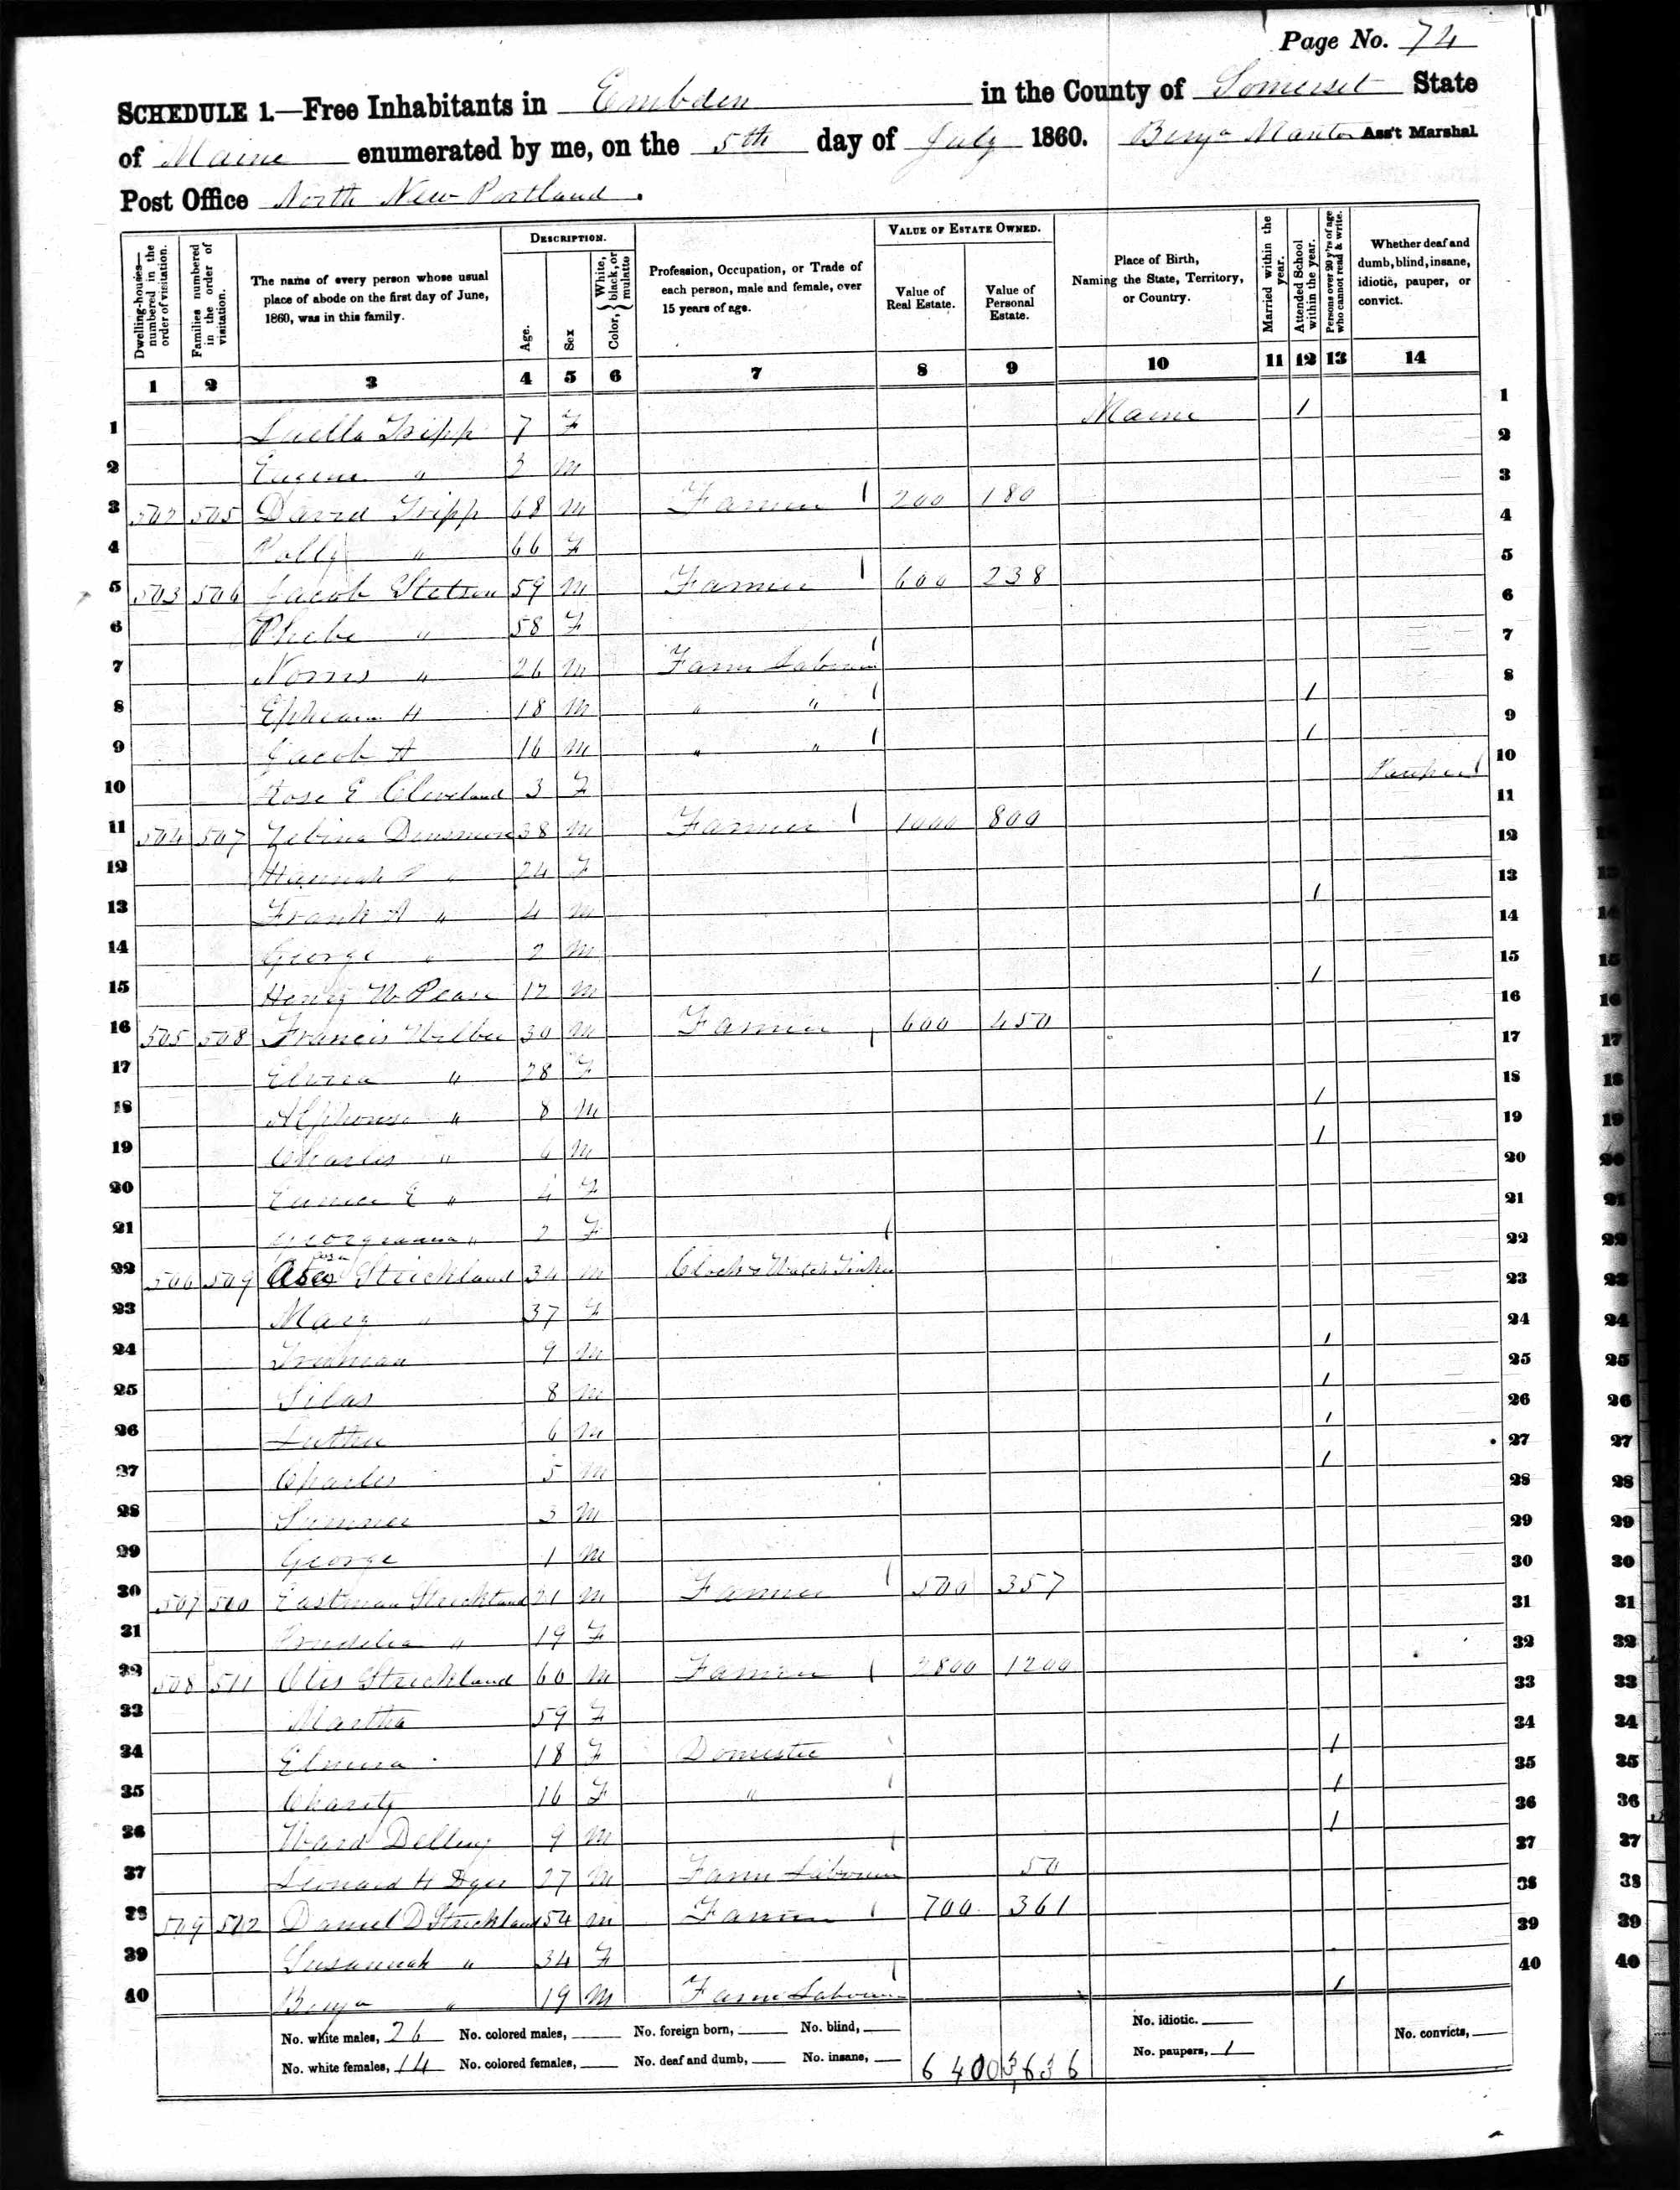 Page No. 74
SCHEDULE 1.—Free Inhabitants in Embden in the County of Somerset State
of Maine enumerated by me, on the 5th day of July 1860. Benja Ass't Marshal
Post Office North New Portland.
Dwelling-houses—numbered in the order of visitation.
Families numbered in the order of visitation.
The name of every person whose usual place of abode on the first day of June, 1860, was in this family.
DESCRIPTION.
Age.
Sex
Color, { White, black, or mulatto
Profession, Occupation, or Trade of each person, male and female, over 15 years of age.
VALUE OF ESTATE OWNED.
Value of Real Estate.
Value of Personal Estate.
Place of Birth, Naming the State, Territory, or Country.
Married within the year.
Attended School within the year.
Persons over 20 y'rs of age who cannot read & write.
Whether deaf and dumb, blind, insane, idiotic, pauper, or convict.
1 2 3 4 5 6 7 8 9 10 11 12 13 14
1 Luella Tripp 7 F Maine 1 1
2 Eugene " 3 M 2
3 502 505 David Tripp 68 M Farmer 1 200 180 3
4 Polly " 66 F 4
5 503 506 Jacob Stetson 59 M Farmer 1 600 238 5
6 Phebe " 58 F 6
7 Norris " 26 M Farm Laborer 1 7
8 Ephraim H 18 M " " 1 1 8
9 Jacob A 16 M " " 1 1 9
10 Rose E Cleveland 3 F Pauper 1 10
11 504 507 Zebina Dinsmore 38 M Farmer 1 1000 800 11
12 Hannah " 24 F 12
13 Frank A " 4 M 1 13
14 George " 2 M 14
15 Henry W 12 M 1 15
16 505 508 Francis Wilber 30 M Farmer 1 600 450 16
17 Elvira " 28 F 17
18 Alphonso " 8 M 1 18
19 Charles " 6 M 1 19
20 Eunice E " 4 F 20
21 Georgeanna " 2 F 21
22 506 509 Asa Strickland 34 M Clock & Watch Tinker 1 22
23 Mary " 37 F 23
24 Truman 9 M 1 24
25 Silas 8 M 1 25
26 Luther 6 M 1 26
27 Charles 5 M 1 27
28 Sumner 3 M 28
29 George 1 M 29
30 507 510 Eastman Strickland 21 M Farmer 1 500 357 30
31 " 19 F 31
32 508 511 Otis Strickland 60 M Farmer 1 2800 1200 32
33 Martha 59 F 33
34 Elmira 18 F Domestic 1 1 34
35 Charity 16 F " 1 1 35
36 Ward 9 M 1 36
37 Leonard H Dyer 27 M Farm Laborer 1 50 37
38 509 512 Daniel D Strickland 54 M Farmer 1 700 361 38
39 Susannah " 34 F 39
40 Benja " 19 M Farm Laborer 1 1 40
No. white males, 26 No. colored males, No. foreign born, No. blind, No. idiotic. No. convicts,
No. white females, 14 No. colored females, No. deaf and dumb, No. insane, 6400 3,636 No. paupers, 1